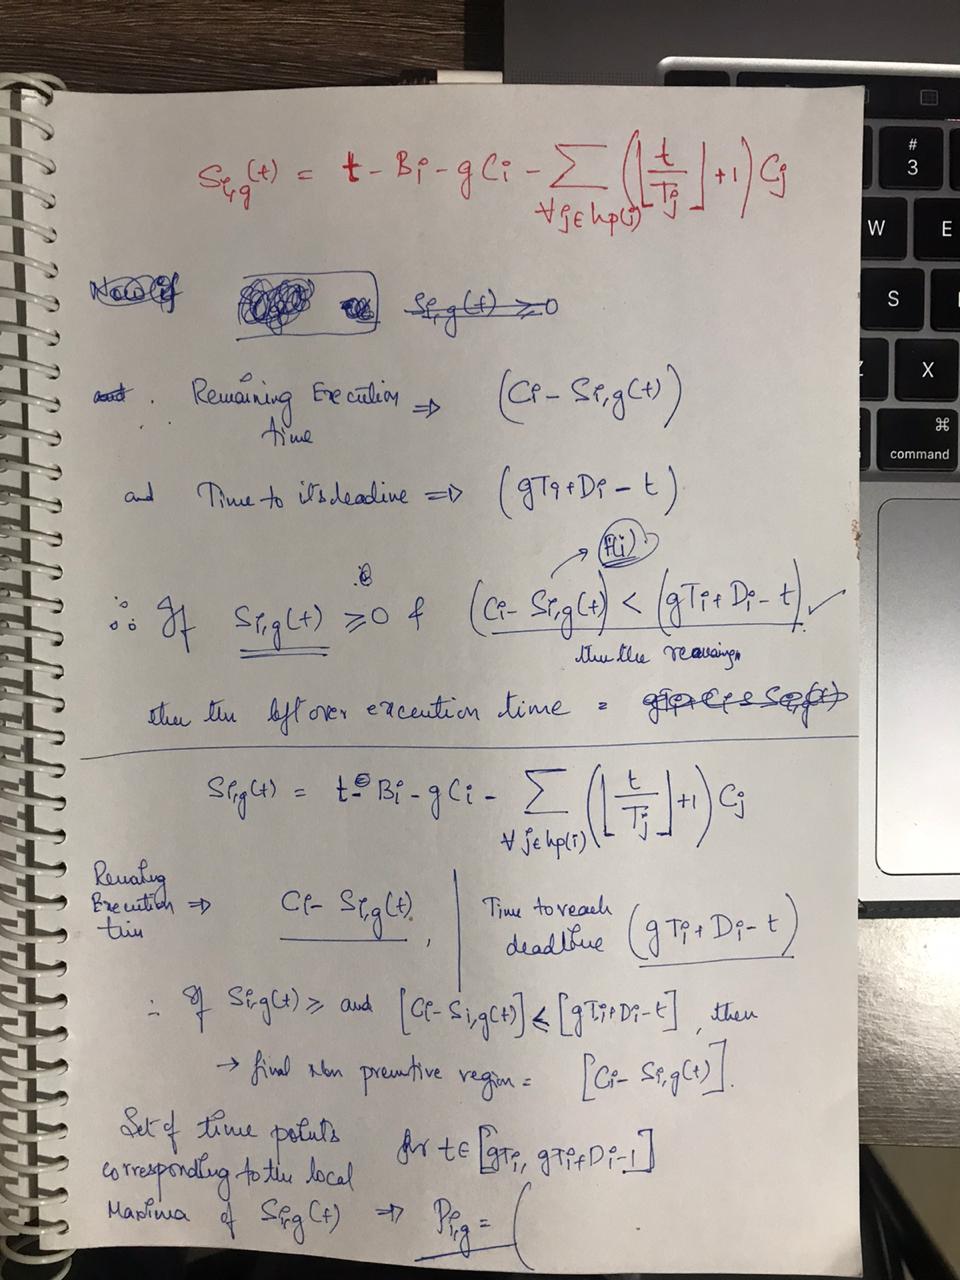 Si,g(t) = t - Bi - gCi - ∑ ∀j∈hp(i) (⌊t/Tj⌋+1) Cj
Now if Si,g(t) ≥ 0
and . Remaining Execution time ⇒ (Ci - Si,g(t))
and Time to its deadine ⇒ (gTi+Di - t)
F(i)
∴ If Si,g(t) ≥ 0 & (Ci - Si,g(t)) < (gTi + Di - t) ✓
then the
then the left over excention time =
Si,g(t) = t - Bi - gCi - ∑ ∀j∈hp(i) (⌊t/Tj⌋+1) Cj
Execution ⇒ Ci - Si,g(t) ,
Time to reach deadline (gTi + Di - t)
∴ If Si,g(t) ≥ and [Ci - Si,g(t)] ≤ [gTi+Di-t] , then
→ final Non premtive region = [Ci - Si,g(t)].
Set of time points for t∈ [gTi, gTi+Di-1]
corresponding to the local
Maxima of Si,g(t) ⇒ Pi,g = (
# 3
W
E
S
X
⌘
command